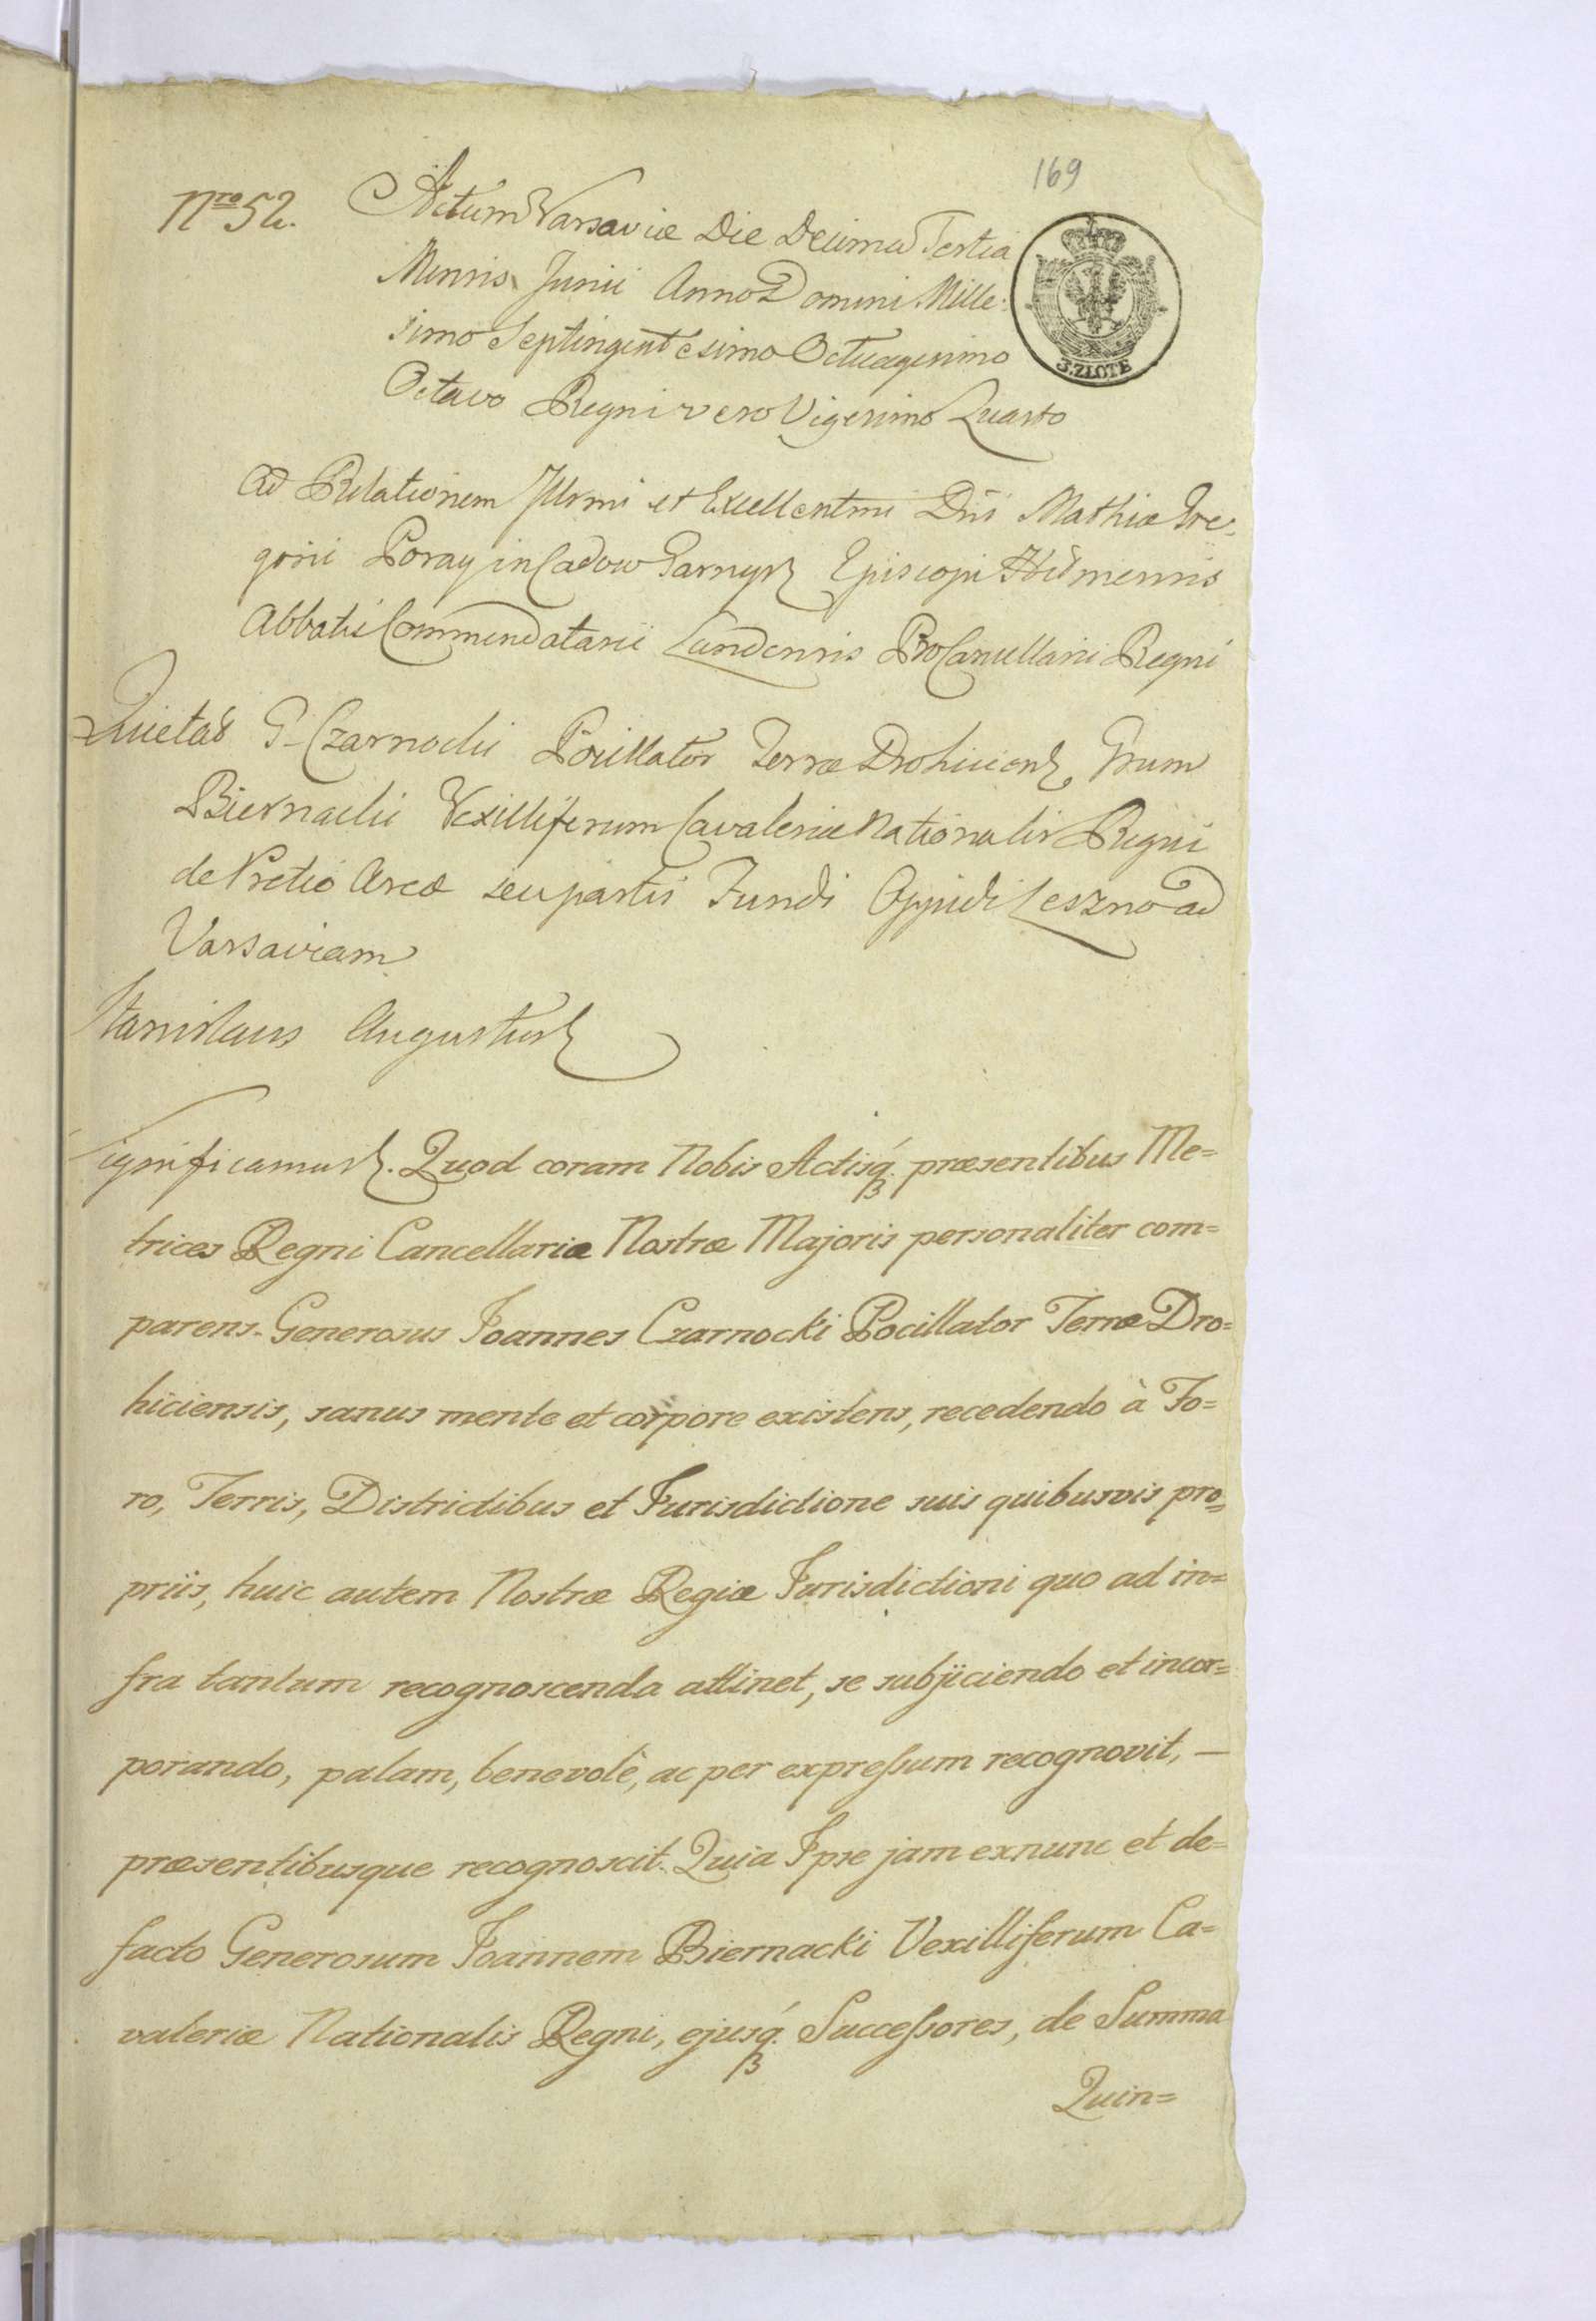 169
Nro 52. Actum Varsaviæ Die Decima Tertia
Mensis Junii Anno Domini Mille:
simo Septingentesimo Octuagesimo
Octavo Regni vero Vigesimo Quarto
3. ZŁOTE
Ad Relationem Illrmi et Excellentmi Dni Mathiæ Gre:
gorii Poray in Cadow Garnysz Episcopi
Abbatis Commendatarii Landensis ProCancellarii Regni
Quietat G. Czarnocki Pocillator Terræ Drohicens Gnum
Biernacki Vexilliferum Cavaleriæ Nationalis Regni
de Pretio Areæ seu partis Fundi Oppidi Leszno ad
Varsaviam
Stanislaus Augustus
Significamus. Quod coram Nobis Actisq́. præsentibus Me=
trices Regni Cancellariæ Nostræ Majoris personaliter com=
parens. Generosus Joannes Czarnocki Pocillator Terræ Dro=
hiciensis, sanus mente et corpore existens, recedendo à Fo=
ro, Terris, Districtibus et Jurisdictione suis quibusvis pro=
priis, huic autem Nostræ Regiæ Jurisdictioni quo ad in=
fra tantum recognoscenda attinet, se subjiciendo et incor=
porando, palam, benevolè, ac per expreſsum recognovit, —
præsentibusque recognoscit. Quia Ipse jam exnunc et de=
facto Generosum Joannem Biernacki Vexilliferum Ca=
valeriæ Nationalis Regni, ejusq́. Succeſsores, de Summa
Quin=